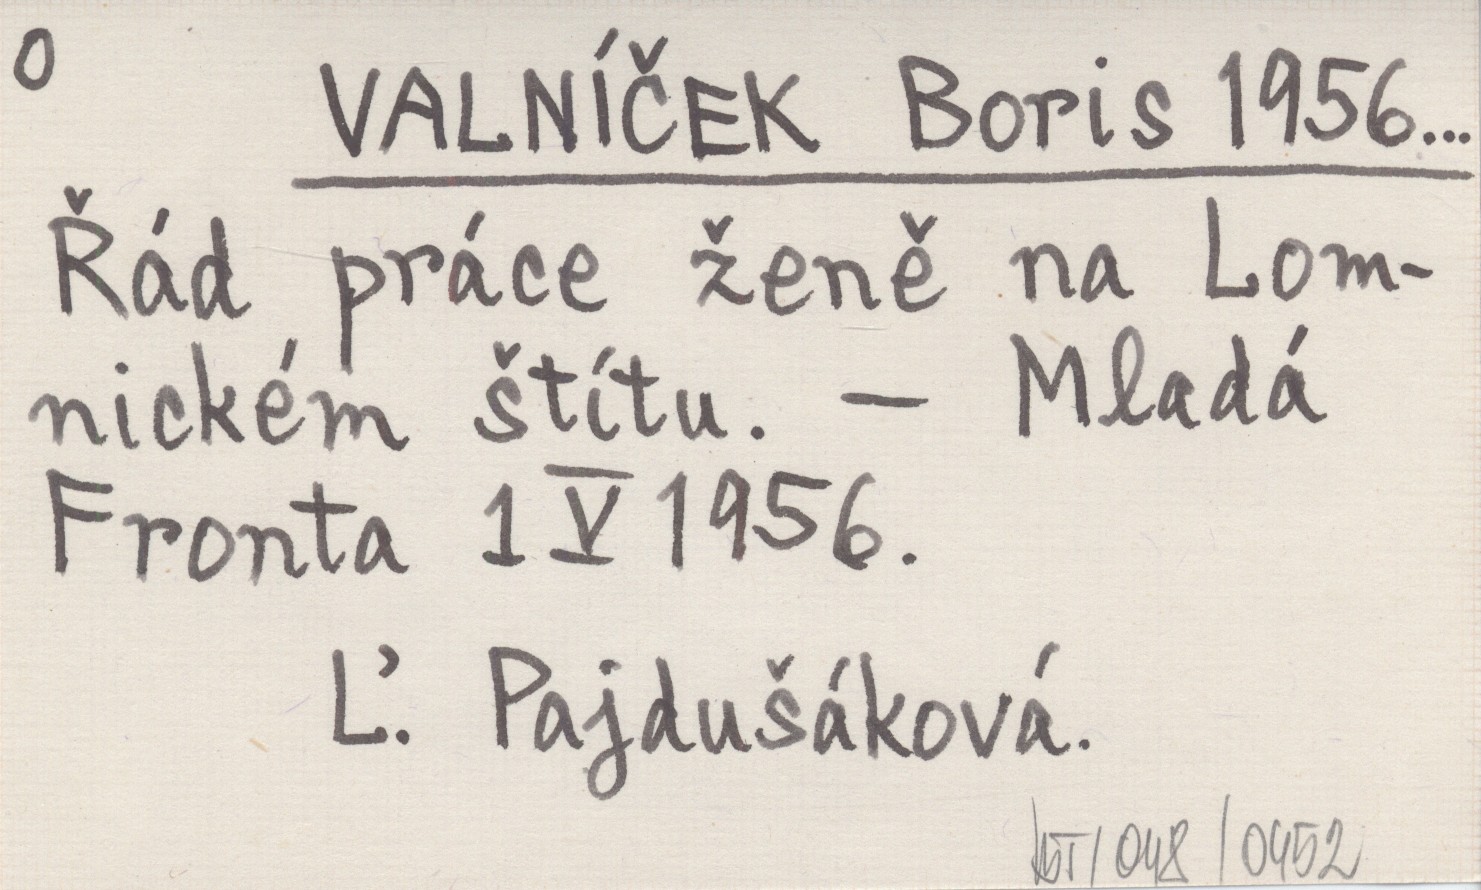 O
VALNÍČEK Boris 1956...
Řád práce ženě na Lom-
nickém štítu. — Mladá
Fronta 1 V 1956.
Ľ. Pajdušáková.
/048/0452